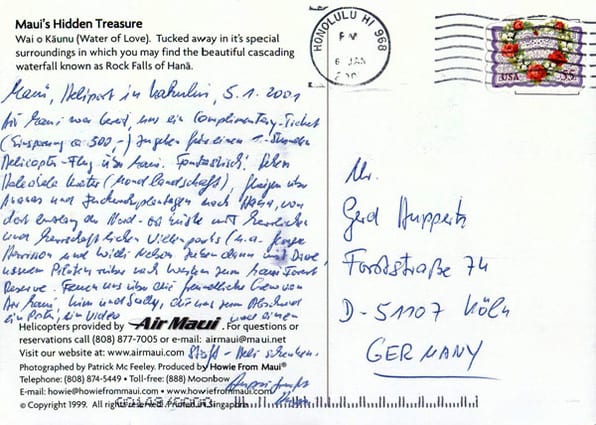 Maui's Hidden Treasure
Wai o Kāunu (Water of Love). Tucked away in it's special
surroundings in which you may find the beautiful cascading
waterfall known as Rock Falls of Hanā.
Maui, Heliport in Kahului, 5.1.2001
Air Maui war bereit, uns ein Complimentary-Ticket
(Einsparung ca 500,-) zu geben für einen 1-Stunden
Helicopter-Flug über Maui. Fantastisch!
Haleakala Krater (Mondlandschaft), fliegen über
Ananas und Zuckerrohrplantagen nach Hana, von
dort entlang der Nord-ost küste mit herrlichen
und herrschaftlichen (u.a. George
Harrison und Willi Nelson dann mit Dave,
unserem Piloten rüber nach westen zum Maui Forest
Reserve. Freuen uns über die freundliche Crew von
Air Maui, Kim und Sally, die uns zum Abschied
ein Foto, ein Video und einen
Stoff-Heli schenken.
Helicopters provided by Air Maui. For questions or
reservations call (808) 877-7005 or e-mail: airmaui@maui.net
Visit our website at: www.airmaui.com
Photographed by Patrick Mc Feeley. Produced by Howie From Maui®
Telephone: (808) 874-5449 • Toll-free: (888) Moonbow
E-mail: howie@howiefrommaui.com • www.howiefrommaui.com
© Copyright 1999. All rights reserved. Printed in Singapore
HONOLULU HI 968
PM
6 JAN
USA 55
Mr.
Gerd Huppertz
Forststraße 74
D-51107 Köln
GERMANY